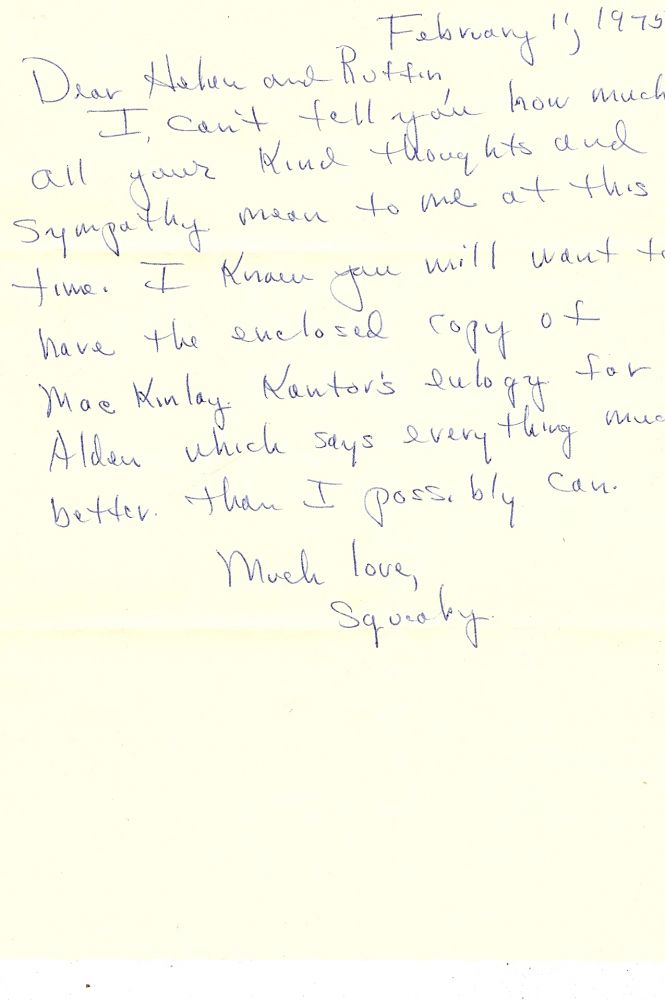 February 11, 1975
Dear Helen and Ruffin
I can't tell you how much
all your kind thoughts and
sympathy mean to me at this
time. I know you will want to
have the enclosed copy of
MacKinlay Kantor's eulogy for
Alden which says everything muc
better than I possibly can.
Much love,
Squeaky